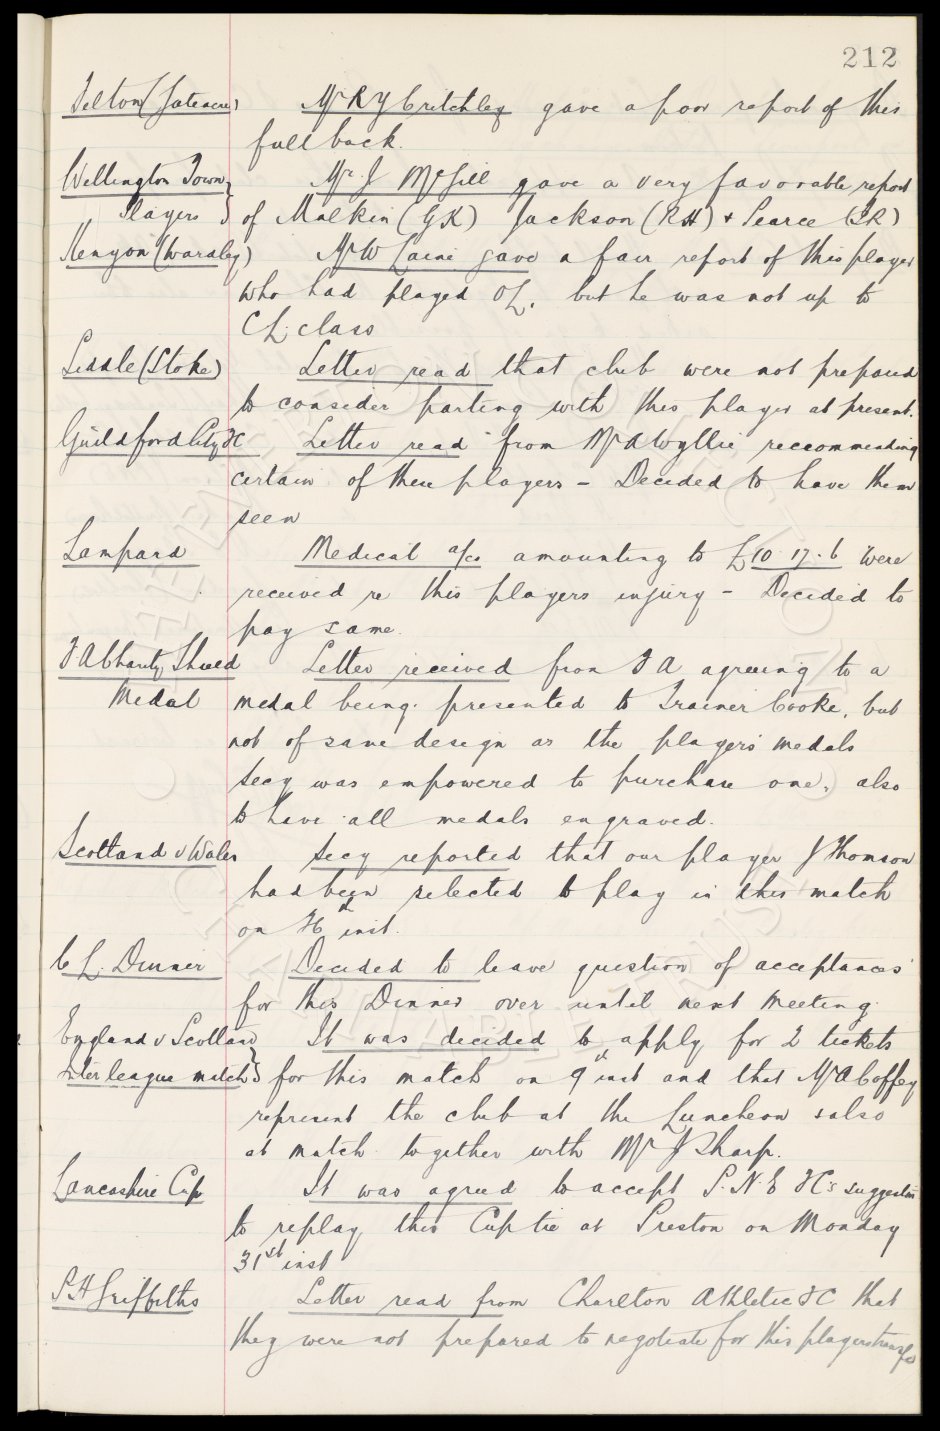 212
Telton (Gateacre) Mr R Y Critchley gave a poor report of this
full back.
Wellington Town Mr. J McGill gave a very favorable report
Players } of Malkin (GK) Jackson (RH) + Pearce (IR)
Kenyon (Wardley) Mr W Laine gave a fair report of this player
who had played OL, but he was not up to
CL. class
Liddle (Stoke) Letter read that club were not prepared
to consider parting with this player at present.
Guildford City FC Letter read from Mr A Wyllie reccommending
certain of these players – Decided to have them
seen
Lampard Medical a/cs amounting to £10. 17. 6 were
received re this players injury – Decided to
pay same.
F A Charity Shield Letter received from F A agreeing to a
Medal medal being presented to Trainer Cooke, but
not of same design as the players' medals
Secy was empowered to purchase one, also
to have all medals engraved.
Scotland v Wales Secy reported that our player J Thomson
had been selected to play in this match
on 26th inst.
C L. Dinner Decided to leave question of acceptances
for this Dinner over until next meeting.
England v Scotland It was decided to apply for 2 tickets
Inter league match } for this match on 9th inst and that Mr A Coffey
represent the club at the Luncheon & also
at match together with Mr J Sharp.
Lancashire Cup It was agreed to accept P.N.E FC's suggestion
to replay this Cup tie at Preston on Monday
31st inst
P H Griffiths Letter read from Charlton Athletic FC that
they were not prepared to negotiate for this players transfer